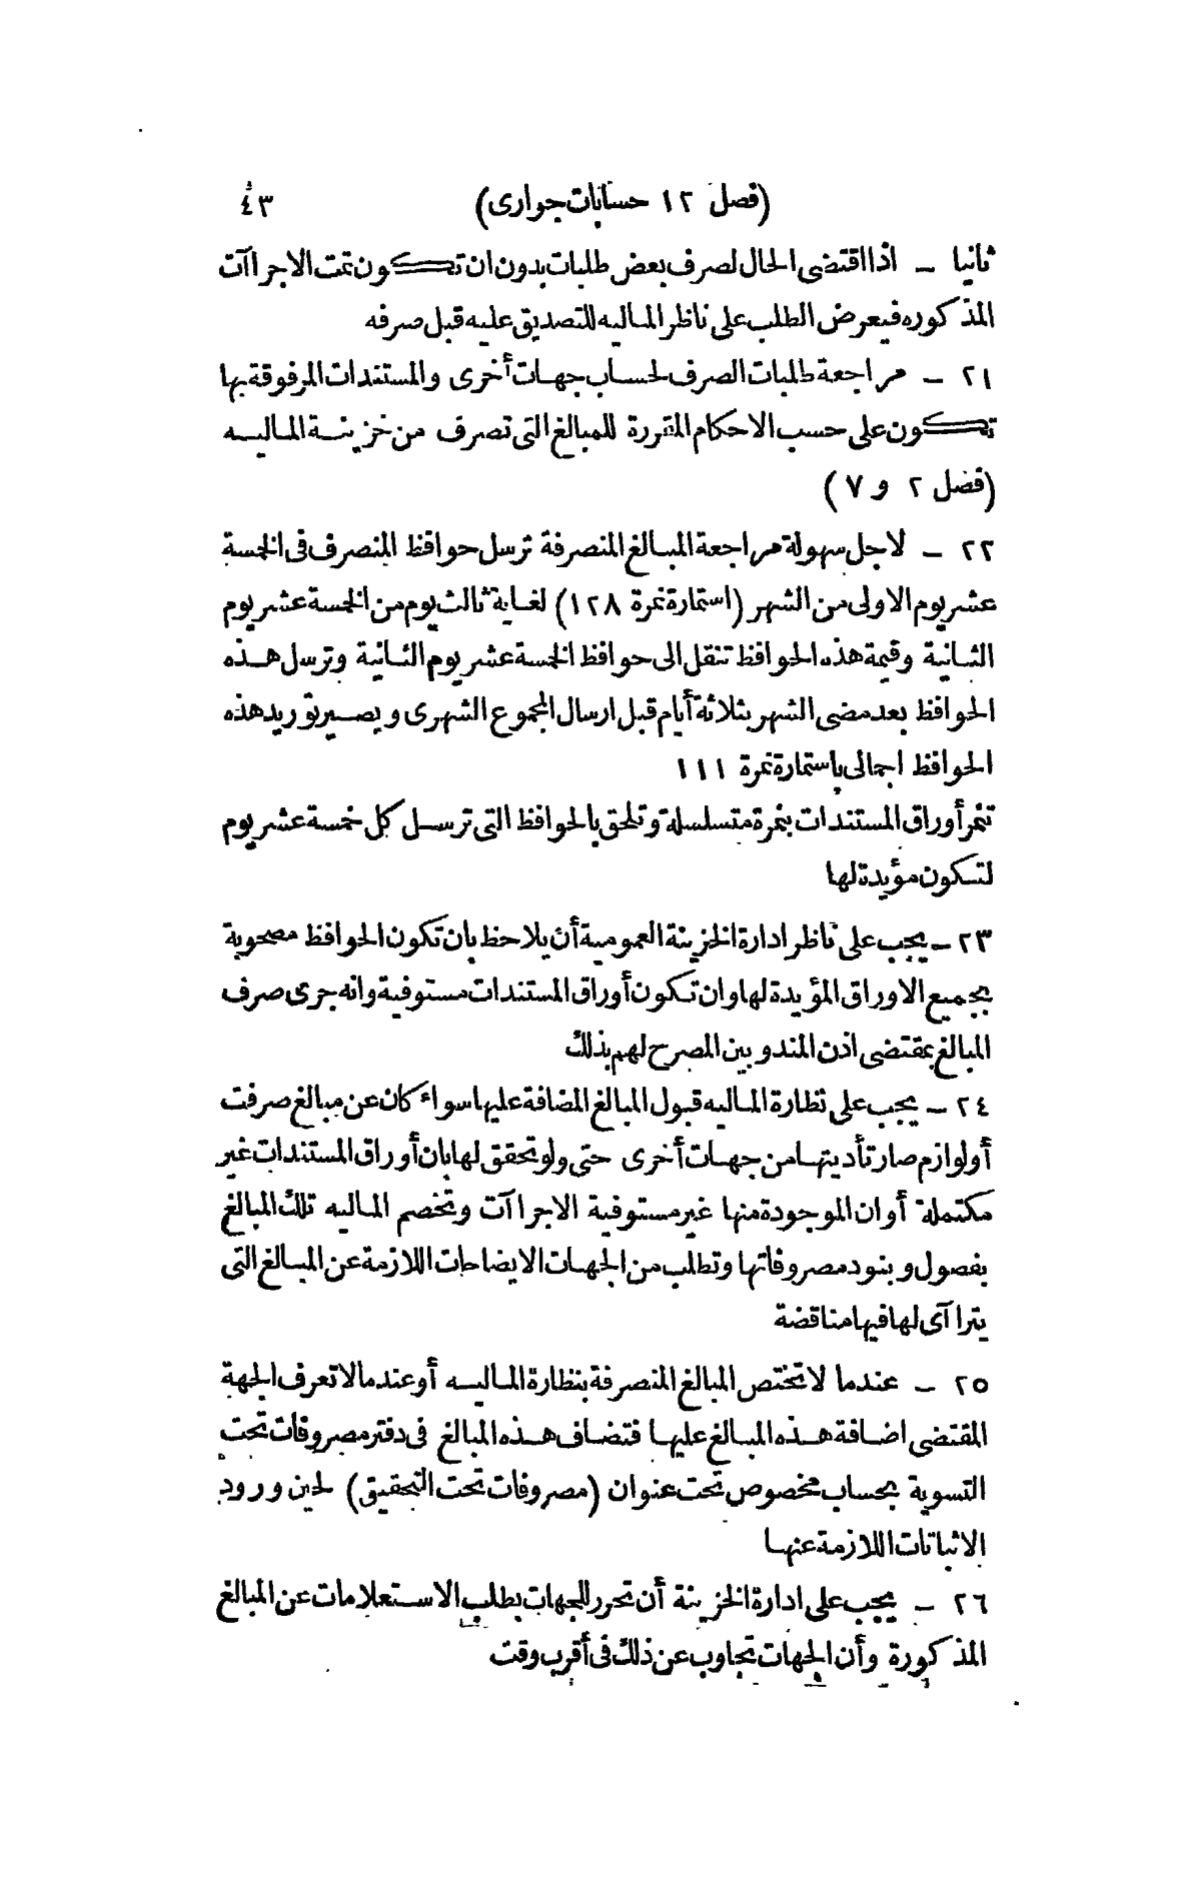 (فصل ١٢ حسابات جوارى) ٤٣
ثانيا — اذا اقتضى الحال لصرف بعض طلبات بدون ان تكون تمت الاجراآت
المذكوره فيعرض الطلب على ناظر الماليه للتصديق عليه قبل صرفه
٢١ — مراجعة طلبات الصرف لحساب جهات أخرى والمستندات المرفوقة بها
تكون على حسب الاحكام المقررة للمبالغ التى تصرف من خزينة الماليه
(فصل ٢ و ٧)
٢٢ — لاجل سهولة مراجعة المبالغ المنصرفة ترسل حوافظ المنصرف فى الخمسة
عشر يوم الاولى من الشهر (استمارة نمرة ١٢٨) لغاية ثالث يوم من الخمسة عشر يوم
الثانية وقيمة هذه الحوافظ تنقل الى حوافظ الخمسة عشر يوم الثانية وترسل هذه
الحوافظ بعد مضى الشهر بثلاثة أيام قبل ارسال المجموع الشهرى ويصير توريد هذه
الحوافظ اجمالى باستمارة نمرة ١١١
تنمر أوراق المستندات بنمرة متسلسلة وتلحق بالحوافظ التى ترسل كل خمسة عشر يوم
لتكون مؤيدة لها
٢٣ — يجب على ناظر ادارة الخزينة العمومية أن يلاحظ بان تكون الحوافظ مصحوبة
بجميع الاوراق المؤيدة لها وان تكون أوراق المستندات مستوفية وانه جرى صرف
المبالغ بمقتضى اذن المندوبين المصرح لهم بذلك
٢٤ — يجب على نظارة الماليه قبول المبالغ المضافة عليها سواء كان عن مبالغ صرفت
أو لوازم صار تأديتها من جهات أخرى حتى ولو تحقق لها بان أوراق المستندات غير
مكتملة أو ان الموجودة منها غير مستوفية الاجراآت وتخصم الماليه تلك المبالغ
بفصول وبنود مصروفاتها وتطلب من الجهات الايضاحات اللازمة عن المبالغ التى
يتراآى لها فيها مناقضة
٢٥ — عندما لا تختص المبالغ المنصرفة بنظارة الماليه أو عندما لا تعرف الجهة
المقتضى اضافة هذه المبالغ عليها فتضاف هذه المبالغ فى دفتر مصروفات تحت
التسوية بحساب مخصوص تحت عنوان (مصروفات تحت التحقيق) لحين ورود
الاثباتات اللازمة عنها
٢٦ — يجب على ادارة الخزينة أن تحرر للجهات بطلب الاستعلامات عن المبالغ
المذكورة وأن الجهات تجاوب عن ذلك فى أقرب وقت